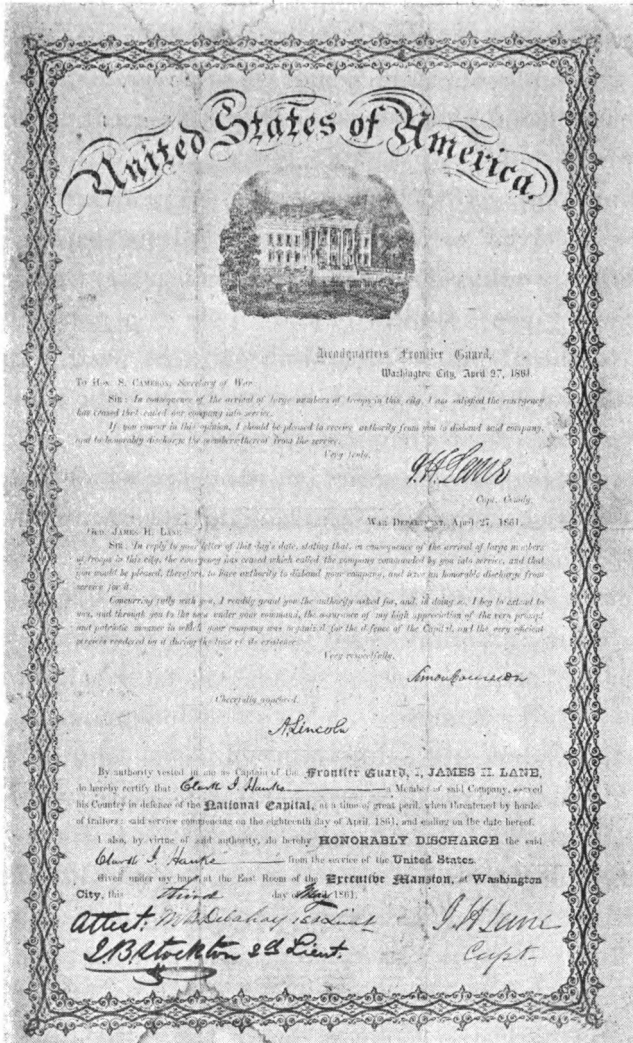 United States of America.
Headquarters Frontier Guard,
Washington City, April 27, 1861.
To Hon. S. Cameron, Secretary of War
Sir: In consequence of the arrival of large numbers of troops in this city, I am satisfied the emergency
has ceased that called our company into service.
If you concur in this opinion, I should be pleased to receive authority from you to disband said company,
and to honorably discharge the members thereof from the service.
Very truly,
J. H. Lane
Capt. Comdg.
War Department, April 27, 1861.
Gen. James H. Lane
Sir: In reply to your letter of this day's date, stating that, in consequence of the arrival of large numbers
of troops in this city, the emergency has ceased which called the company commanded by you into service, and that
you would be pleased, therefore, to have authority to disband your company, and have an honorable discharge from
service for it.
Concurring fully with you, I readily grant you the authority asked for, and, in doing so, I beg to extend to
you, and through you to the men under your command, the assurance of my high appreciation of the very prompt
and patriotic manner in which your company was organized for the defence of the Capital, and the very efficient
services rendered by it during the time of its existence.
Very respectfully,
Simon Cameron
Cheerfully
A. Lincoln
By authority vested in me as Captain of the Frontier Guard, I, JAMES H. LANE,
do hereby certify that Clark J. Hanks a Member of said Company, served
his Country in defence of the National Capital, at a time of great peril, when threatened by hordes
of traitors: said service commencing on the eighteenth day of April, 1861, and ending on the date hereof.
I also, by virtue of said authority, do hereby HONORABLY DISCHARGE the said
Clark J. Hanks from the service of the United States.
Given under my hand, at the East Room of the Executive Mansion, at Washington
City, this third day of May 1861.
Attest: M W Delahay 1st Lieut
J. B. Stockton 2d Lieut.
J H Lane
Capt.